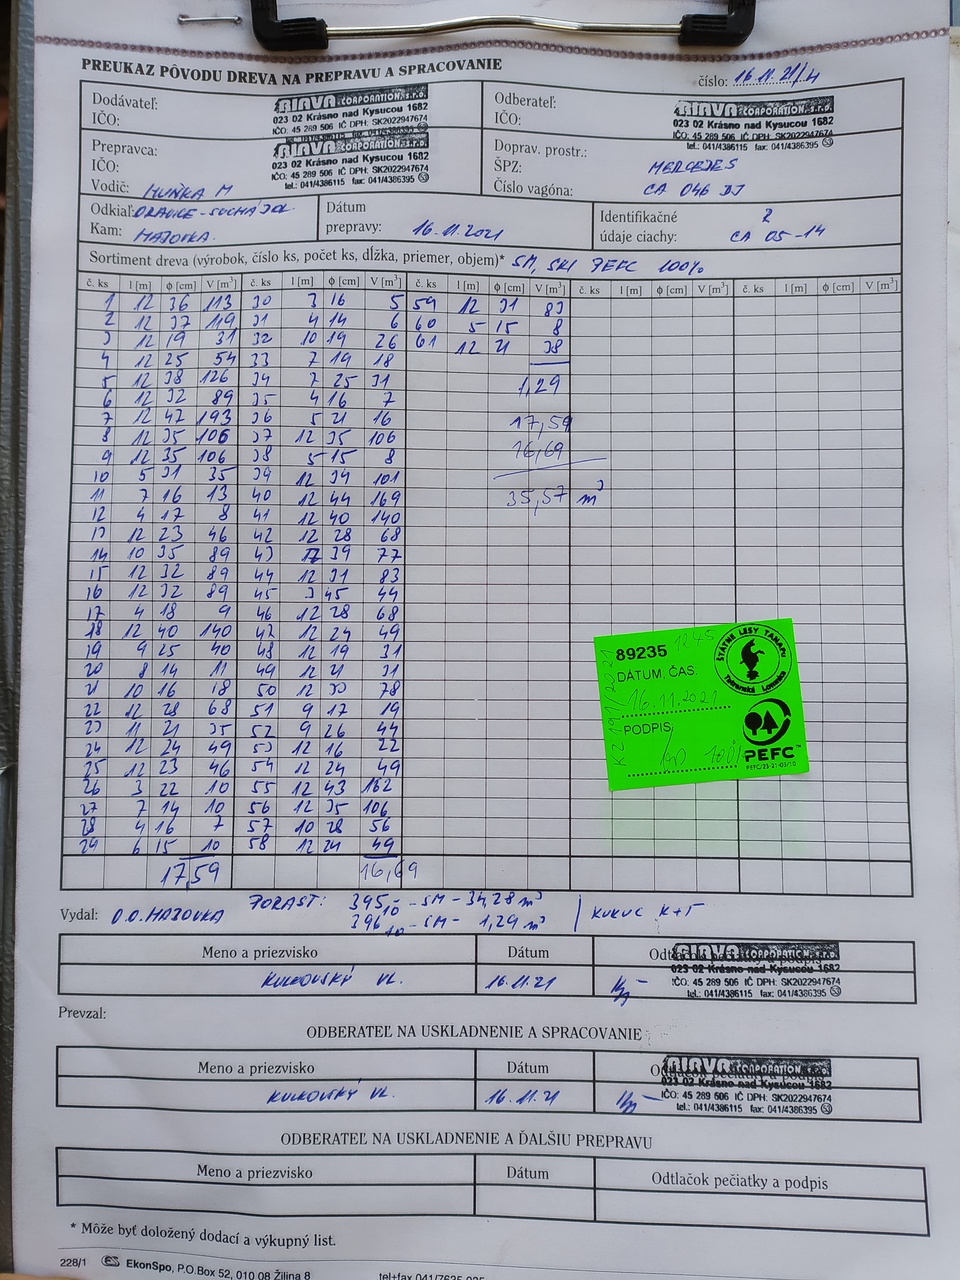 PREUKAZ PÔVODU DREVA NA PREPRAVU A SPRACOVANIE
číslo: 16.11.21/4
Dodávateľ:
IČO:
RIAVA CORPORATION, s.r.o.
023 02 Krásno nad Kysucou 1682
IČO: 45 289 506 IČ DPH: SK2022947674
Odberateľ:
IČO:
RIAVA CORPORATION, s.r.o.
023 02 Krásno nad Kysucou 1682
IČO: 45 289 506 IČ DPH: SK2022947674
tel.: 041/4386115 fax: 041/4386395
Prepravca:
IČO:
Vodič: HUŇKA M
RIAVA CORPORATION, s.r.o.
023 02 Krásno nad Kysucou 1682
IČO: 45 289 506 IČ DPH: SK2022947674
tel.: 041/4386115 fax: 041/4386395
Doprav. prostr.:
ŠPZ: MERCEDES
Číslo vagóna: CA 046 DJ
Odkiaľ: ORAVICE-SUCHÁ DOL.
Kam: HAJOVKA
Dátum
prepravy: 16.11.2021
Identifikačné 2
údaje ciachy: CA 05-14
Sortiment dreva (výrobok, číslo ks, počet ks, dĺžka, priemer, objem)* SM, SKI PEFC 100%
č. ks l [m] ϕ [cm] V [m³] č. ks l [m] ϕ [cm] V [m³] č. ks l [m] ϕ [cm] V [m³] č. ks l [m] ϕ [cm] V [m³] č. ks l [m] ϕ [cm] V [m³]
1 12 36 113 30 3 16 5 59 12 31 83
2 12 37 119 31 4 14 6 60 5 15 8
3 12 19 31 32 10 19 26 61 12 21 38
4 12 25 54 33 7 19 18
5 12 38 126 34 7 25 31 1,29
6 12 32 89 35 4 16 7
7 12 47 193 36 5 21 16 17,59
8 12 35 106 37 12 35 106
9 12 35 106 38 5 15 8 16,69
10 5 31 35 39 12 34 101
11 7 16 13 40 12 44 169 35,57 m³
12 4 17 8 41 12 40 140
13 12 23 46 42 12 28 68
14 10 35 89 43 12 39 77
15 12 32 89 44 12 31 83
16 12 32 89 45 3 45 44
17 4 18 9 46 12 28 68
18 12 40 140 47 12 24 49
19 9 25 40 48 12 19 31
20 8 14 11 49 12 21 31
21 10 16 18 50 12 30 78
22 12 28 68 51 9 17 19
23 11 21 35 52 9 26 44
24 12 24 49 53 12 16 22
25 12 23 46 54 12 24 49
26 3 22 10 55 12 43 162
27 7 14 10 56 12 35 106
28 4 16 7 57 10 28 56
29 6 15 10 58 12 24 49
17,59 16,69
89235 1245
DÁTUM, ČAS.
16.11.2021
PODPIS
100%
ŠTÁTNE LESY TANAPu
Tatranská Lomnica
PEFC™
PEFC/23-21-03/10
Vydal: O.O. HAJOVKA
PORAST: 395 10 - SM - 34,28 m³
396 10 - SM - 1,29 m³
KUKUC K+T
Meno a priezvisko Dátum Odtlačok pečiatky a podpis
KULKOVSKÝ VL. 16.11.21
RIAVA CORPORATION, s.r.o.
023 02 Krásno nad Kysucou 1682
IČO: 45 289 506 IČ DPH: SK2022947674
tel.: 041/4386115 fax: 041/4386395
Prevzal:
ODBERATEĽ NA USKLADNENIE A SPRACOVANIE
Meno a priezvisko Dátum Odtlačok pečiatky a podpis
KULKOVSKÝ VL. 16.11.21
RIAVA CORPORATION, s.r.o.
023 02 Krásno nad Kysucou 1682
IČO: 45 289 506 IČ DPH: SK2022947674
tel.: 041/4386115 fax: 041/4386395
ODBERATEĽ NA USKLADNENIE A ĎALŠIU PREPRAVU
Meno a priezvisko Dátum Odtlačok pečiatky a podpis
* Môže byť doložený dodací a výkupný list.
228/1 EkonSpo, P.O.Box 52, 010 08 Žilina 8